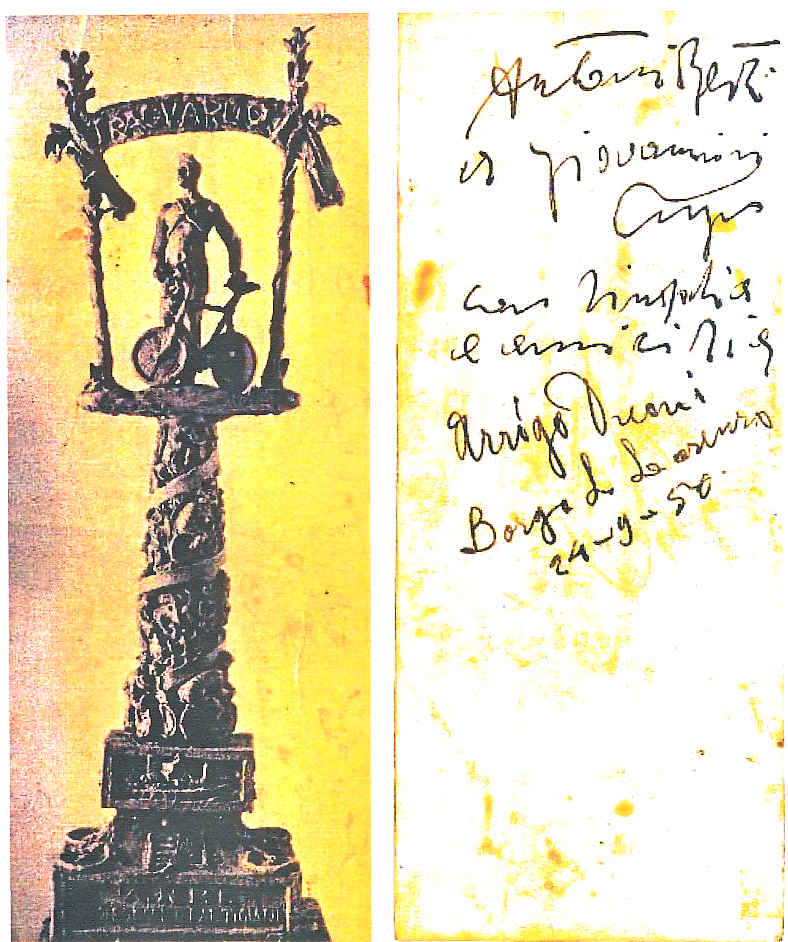 TRAGVARDO
Antonio Berti
a giovannini
con simpatia
e amicizia
Arrigo Dreoni
Borgo S. Lorenzo
24-9-50.